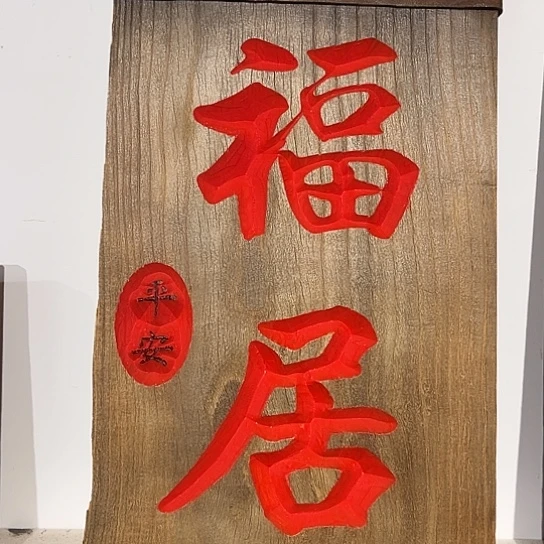 福
居
平
安